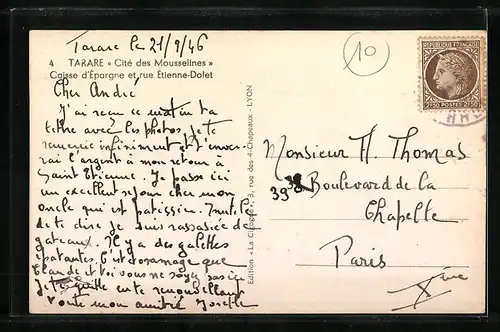 Tarare le 21/9/46
4 TARARE « Cité des Mousselines »
Caisse d'Épargne et rue Étienne-Dolet
Cher André
J'ai reçu ce matin ta
lettre avec les photos je te
remercie infiniment et t'enver-
rai l'argent à mon retour à
Saint Etienne. Je passe ici
un excellent séjour chez mon
oncle qui est patissier. Inutile
de te dire je suis rassasiée de
gateaux. Il y a des galettes
épatantes. C'est dommage que
et toi vous ne soyez pas ici
Je te quitte en te renouvellant
toute mon amitié Josette
Edition « La Cigogne », 3, rue des 4-Chapeaux - LYON
10
REPUBLIQUE FRANÇAISE
2F50 POSTES 2F50
Monsieur A. Thomas
39 Boulevard de la
Chapelle
Paris
Xème